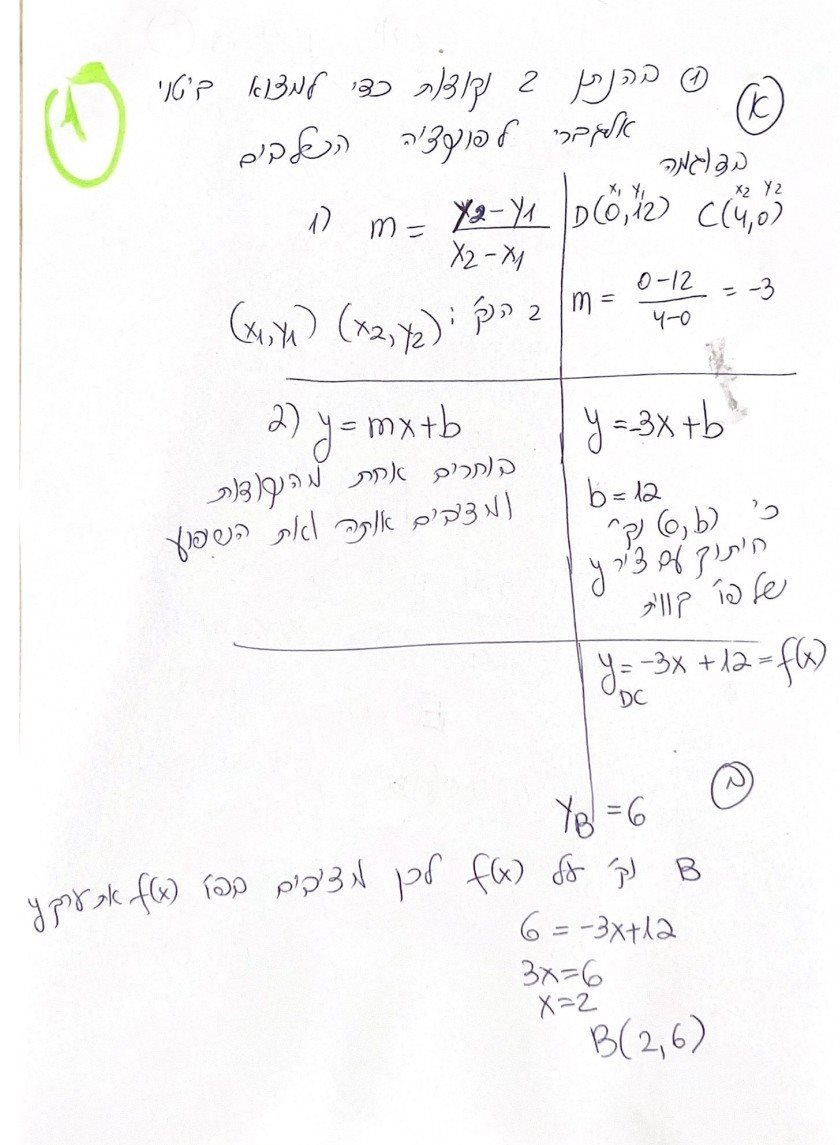 1
א
① בהנתן 2 נקודות כדי למצוא ביטוי
אלגברי לפונקציה השלבים
בדוגמה
1) m = (y2 - y1) / (x2 - x1)
2 הנק': (x1, y1) (x2, y2)
x1 y1 x2 y2
D(0,12) C(4,0)
m = (0-12) / (4-0) = -3
2) y = mx+b
בוחרים אחת מהנקודות
ומציבים אותה ואת השיפוע
y = -3x+b
b = 12
כי (0,b) נק'
חיתוך עם ציר y
של פו' קווית
y = -3x + 12 = f(x)
DC
ב
yB = 6
B נק' על f(x) לכן מציבים בפו' f(x) את ערך y
6 = -3x+12
3x=6
x=2
B(2,6)